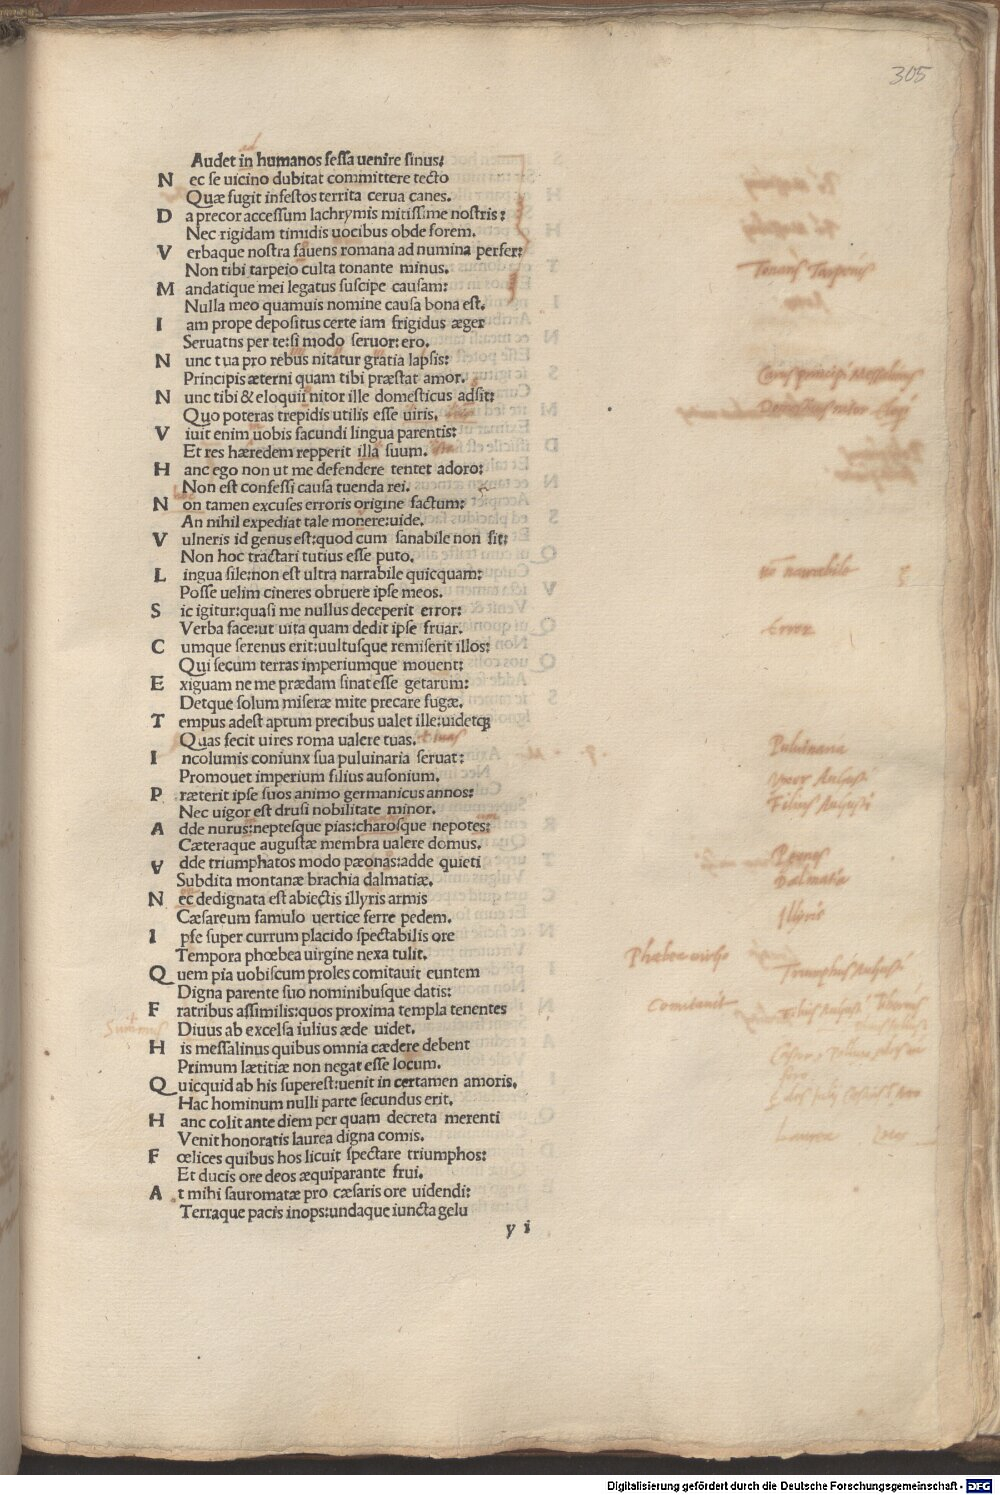 305
Audet in humanos fessa uenire sinus:
N ec se uicino dubitat committere tecto
Quæ fugit infestos territa cerua canes.
D a precor accessum lachrymis mitissime nostris:
Nec rigidam timidis uocibus obde forem.
V erbaque nostra fauens romana ad numina perfer:
Non tibi tarpeio culta tonante minus.
M andatique mei legatus suscipe causam:
Nulla meo quamuis nomine causa bona est.
I am prope depositus certe iam frigidus æger
Seruatus per te:si modo seruor:ero.
N unc tua pro rebus nitatur gratia lapsis:
Principis æterni quam tibi præstat amor.
N unc tibi & eloquii nitor ille domesticus adsit:
Quo poteras trepidis utilis esse uiris.
V iuit enim uobis facundi lingua parentis:
Et res hæredem repperit illa suum.
H anc ego non ut me defendere tentet adoro:
Non est confessi causa tuenda rei.
N on tamen excuses erroris origine factum:
An nihil expediat tale monere:uide.
V ulneris id genus est:quod cum sanabile non sit:
Non hoc tractari tutius esse puto.
L ingua sile:non est ultra narrabile quicquam:
Posse uelim cineres obruere ipse meos.
S ic igitur:quasi me nullus deceperit error:
Verba face:ut uita quam dedit ipse fruar.
C umque serenus erit:uultusque remiserit illos:
Qui secum terras imperiumque mouent:
E xiguam ne me prædam sinat esse getarum:
Detque solum miseræ mite precare fugæ.
T empus adest aptum precibus ualet ille:uidetq;
Quas fecit uires roma ualere tuas.
I ncolumis coniunx sua puluinaria seruat:
Promouet imperium filius ausonium.
P ræterit ipse suos animo germanicus annos:
Nec uigor est drusi nobilitate minor.
A dde nurus:neptesque pias:charosque nepotes:
Cæteraque augustæ membra ualere domus.
V dde triumphatos modo pæonas:adde quieti
Subdita montanæ brachia dalmatiæ.
N ec dedignata est abiectis illyris armis
Cæsareum famulo uertice ferre pedem.
I pse super currum placido spectabilis ore
Tempora phœbea uirgine nexa tulit.
Q uem pia uobiscum proles comitauit euntem
Digna parente suo nominibusque datis:
F ratribus assimilis:quos proxima templa tenentes
Diuus ab excelsa iulius æde uidet.
H is messalinus quibus omnia cædere debent
Primum lætitiæ non negat esse locum.
Q uicquid ab his superest:uenit in certamen amoris.
Hac hominum nulli parte secundus erit.
H anc colit ante diem per quam decreta merenti
Venit honoratis laurea digna comis.
F œlices quibus hos licuit spectare triumphos:
Et ducis ore deos æquiparante frui.
A t mihi sauromatæ pro cæsaris ore uidendi:
Terraque pacis inops:undaque iuncta gelu
y i
Tonans Tarpeius
Carus principi Messalinus
nō narrabile
Error
Puluinaria
Vxor Augusti
Filius Augusti
Peones
Dalmatia
Illyris
Phœbea uirgo
Triumphus Augusti
Comitauit
Laurea
Digitalisierung gefördert durch die Deutsche Forschungsgemeinschaft - DFG